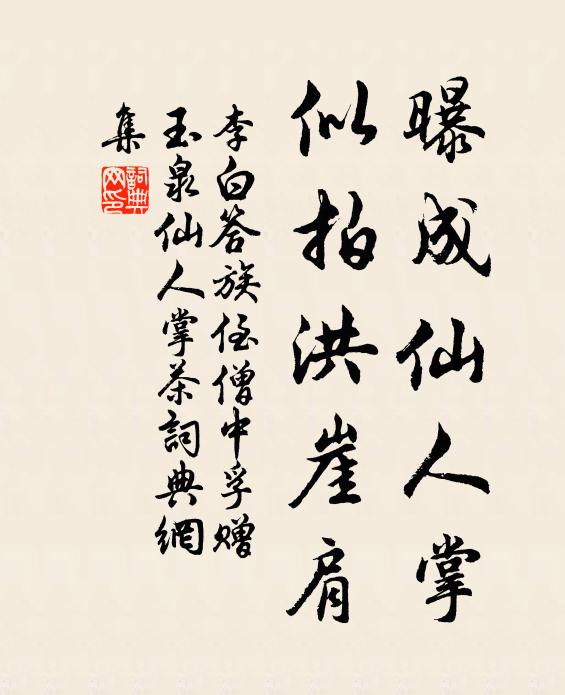 曝成仙人掌
似拍洪崖肩
李白答族侄僧中孚赠
玉泉仙人掌茶詞典網
集
詞典網印